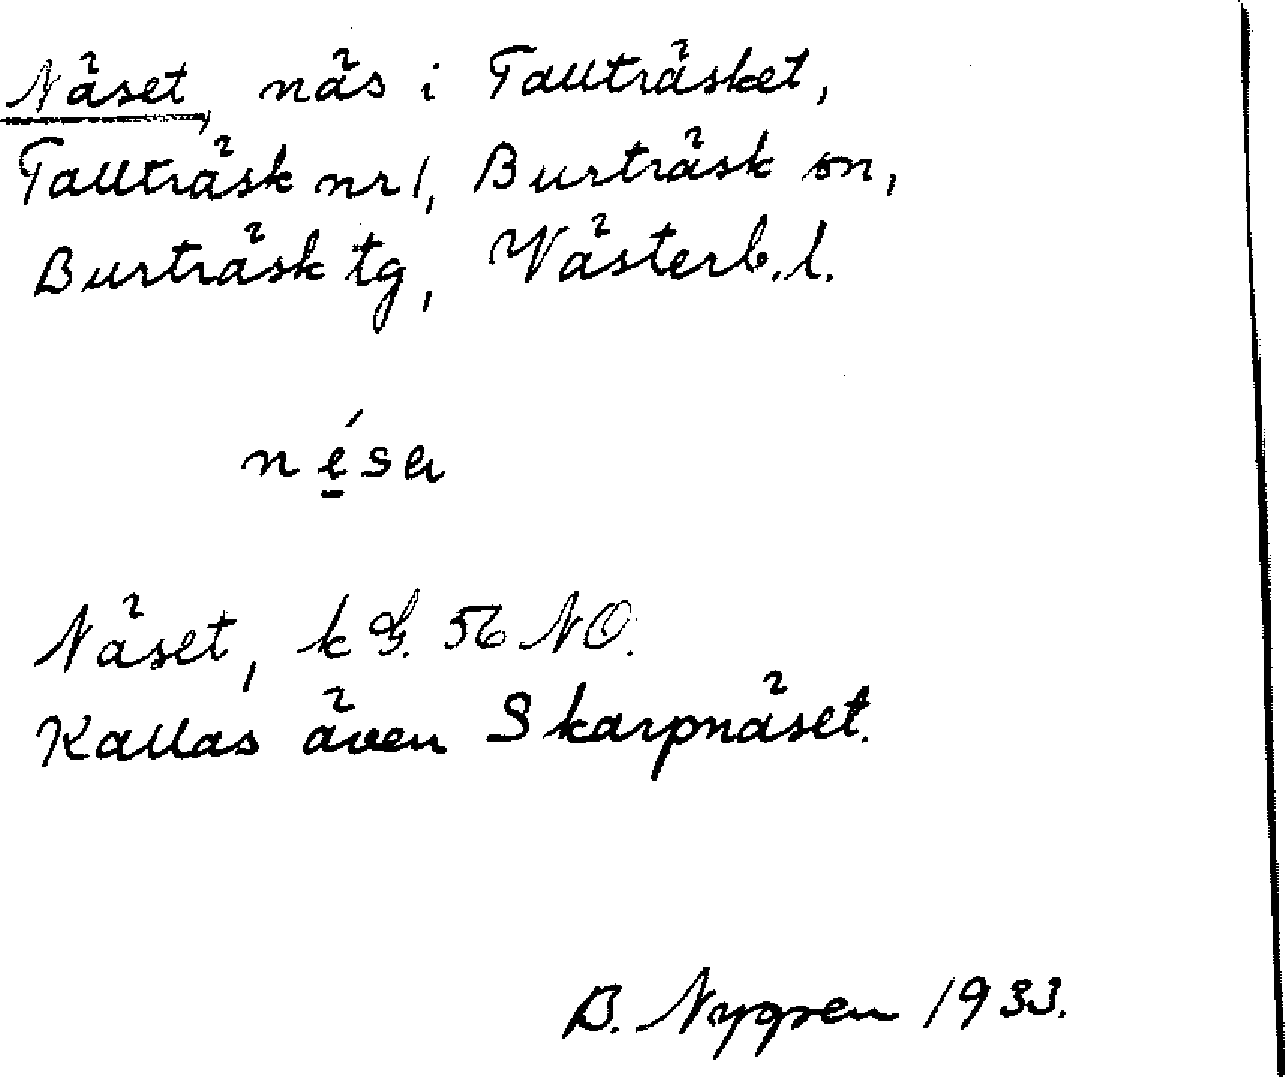 Näset, näs i Tallträsket,
Tallträsk nr 1, Burträsk sn,
Burträsk tg, Västerb. l.
Näset, k G. 56 NO.
Kallas även Skarpnäset.
B. Nygren 1933.